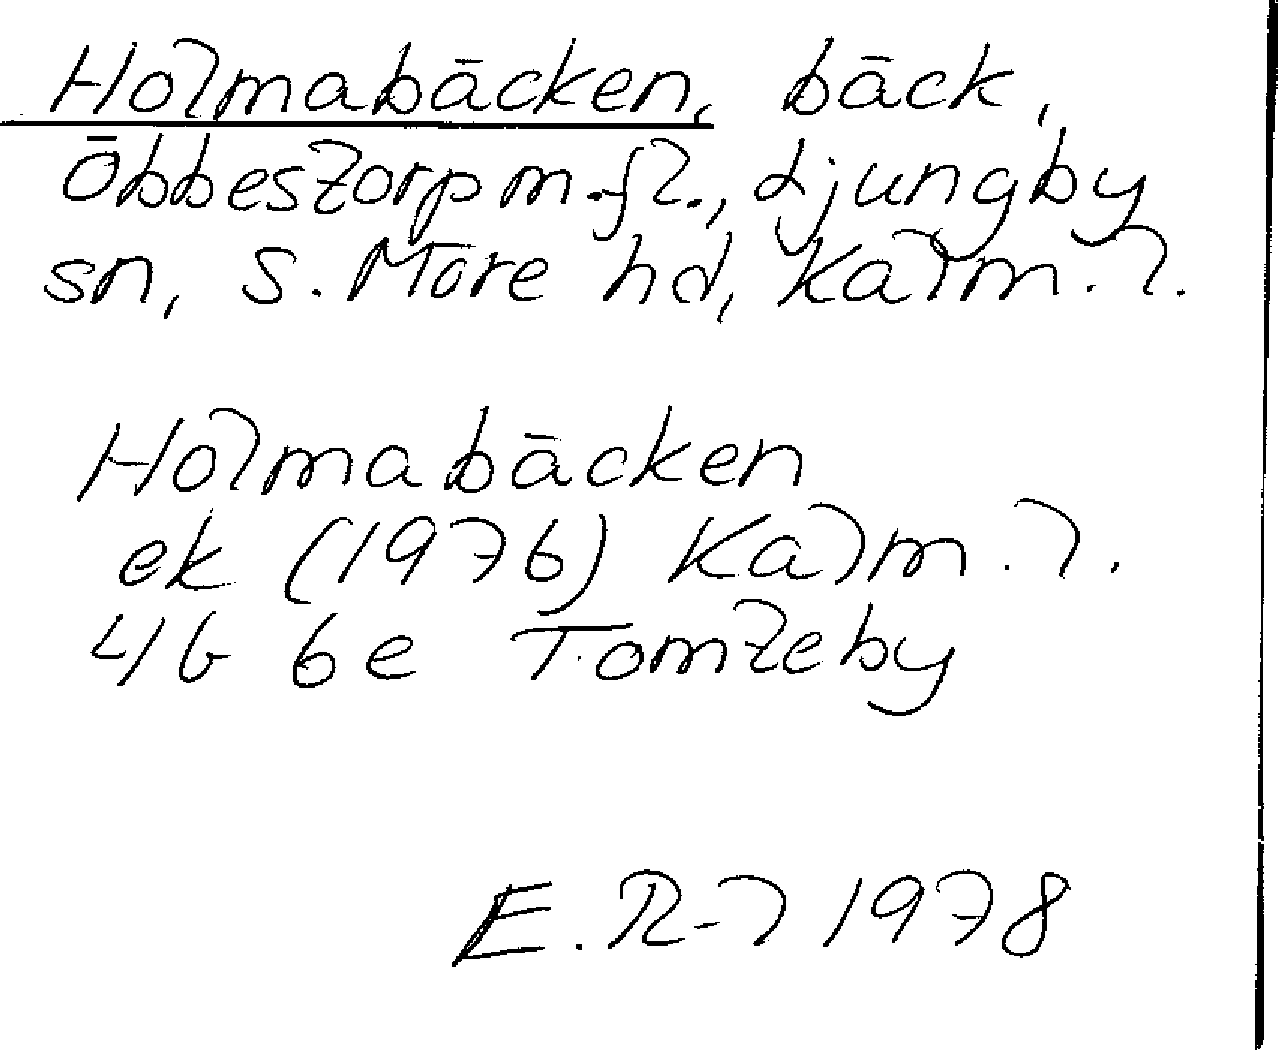 Holmabäcken, bäck,
Öbbestorp m.fl., Ljungby
sn, S. Möre hd, Kalm. l.
Holmabäcken
ek (1976) Kalm. l.
4G 6e Tomteby
E. R-l 1978